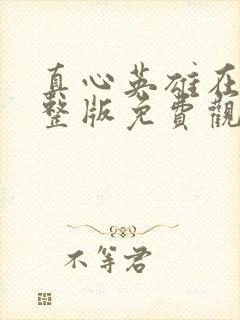 真心英雄在
整版免費觀
不等君